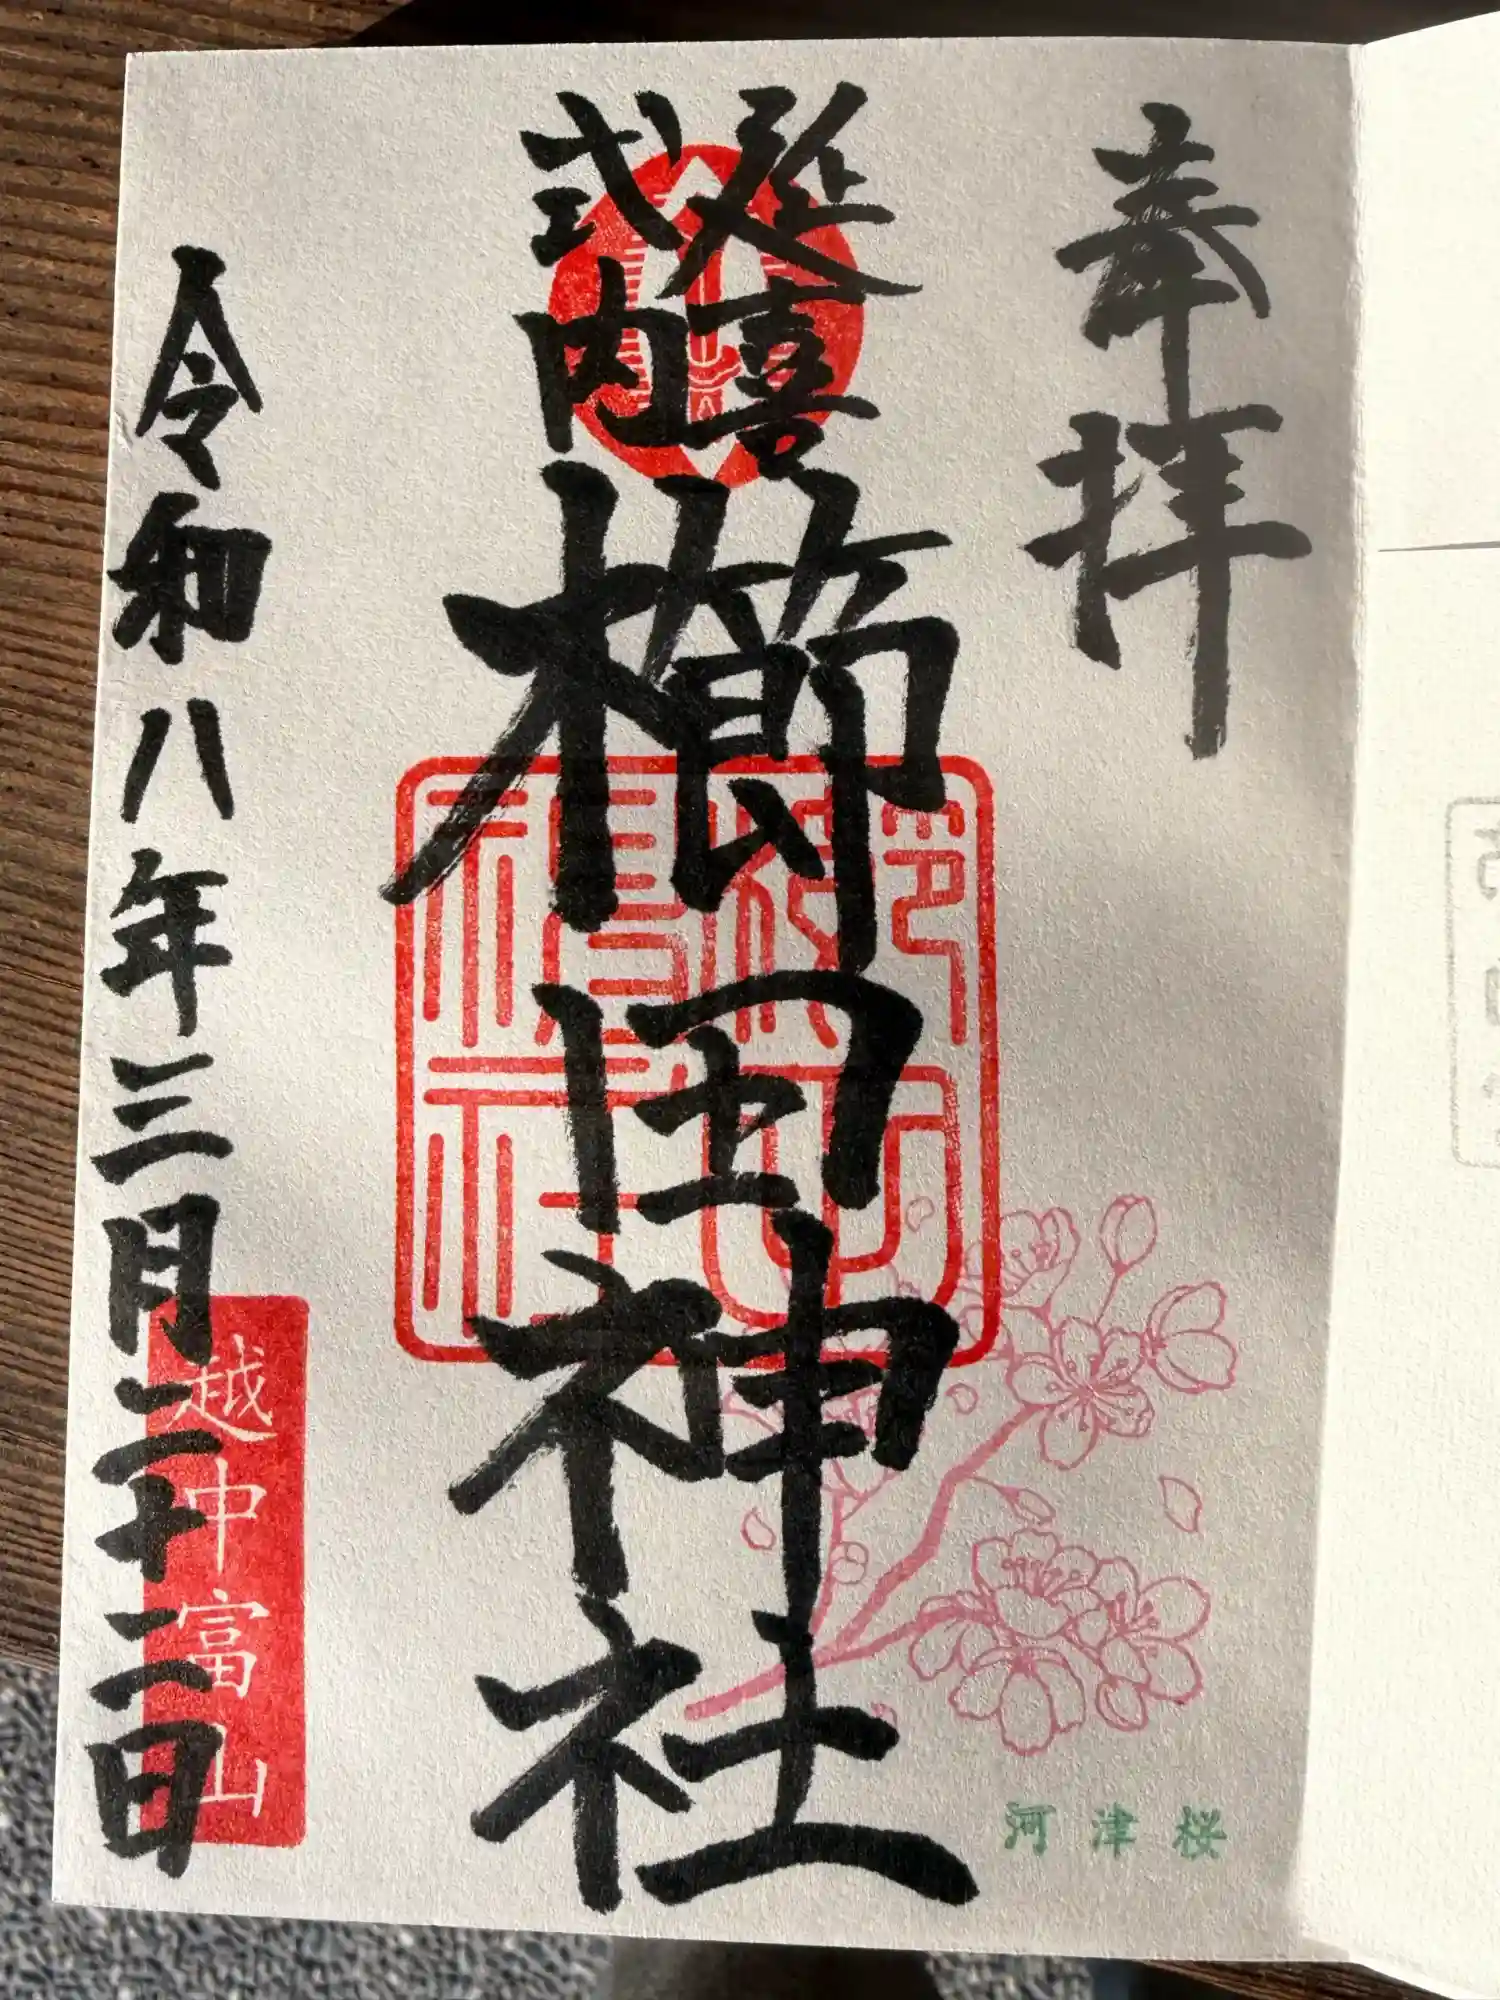 奉拝
延喜
式内
櫛田神社
令和八年三月二十二日
越中富山
河津桜